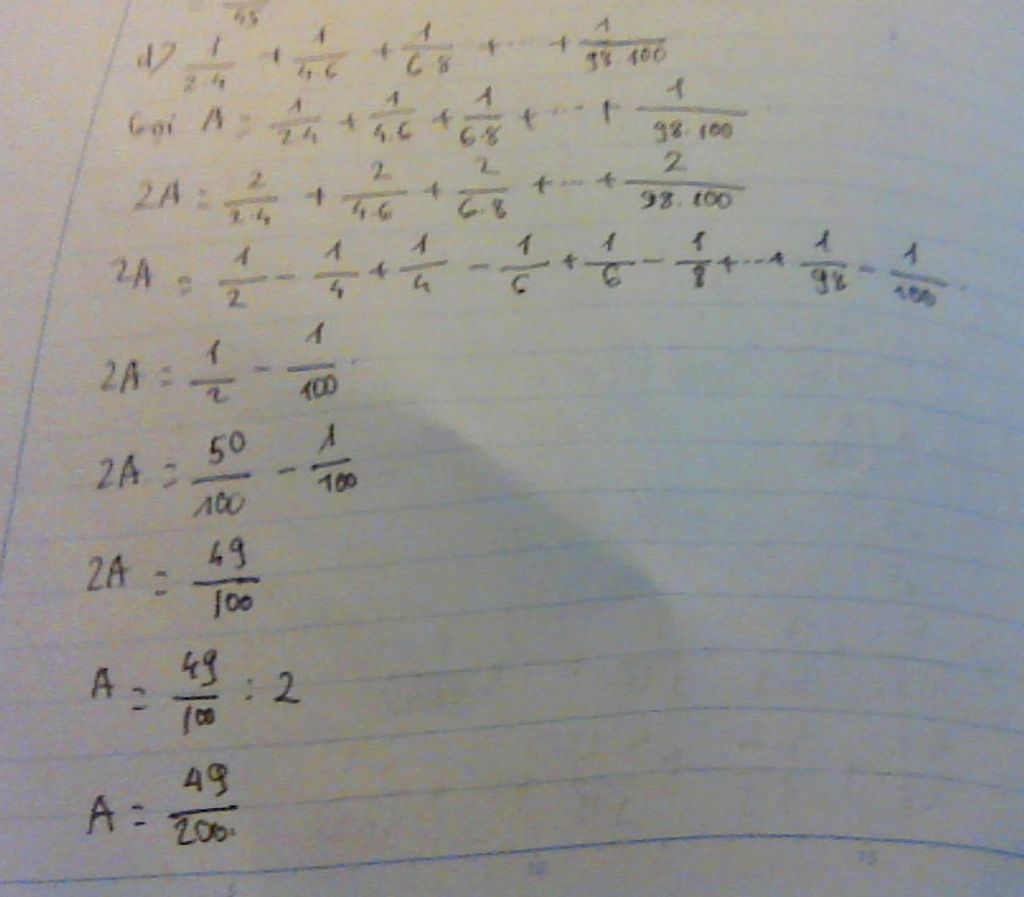 43
d) 1/2.4 + 1/4.6 + 1/6.8 + ... + 1/98.100
Gọi A = 1/2.4 + 1/4.6 + 1/6.8 + ... + 1/98.100
2A = 2/2.4 + 2/4.6 + 2/6.8 + ... + 2/98.100
2A = 1/2 - 1/4 + 1/4 - 1/6 + 1/6 - 1/8 + ... + 1/98 - 1/100.
2A = 1/2 - 1/100.
2A = 50/100 - 1/100
2A = 49/100
A = 49/100 : 2
A = 49/200.